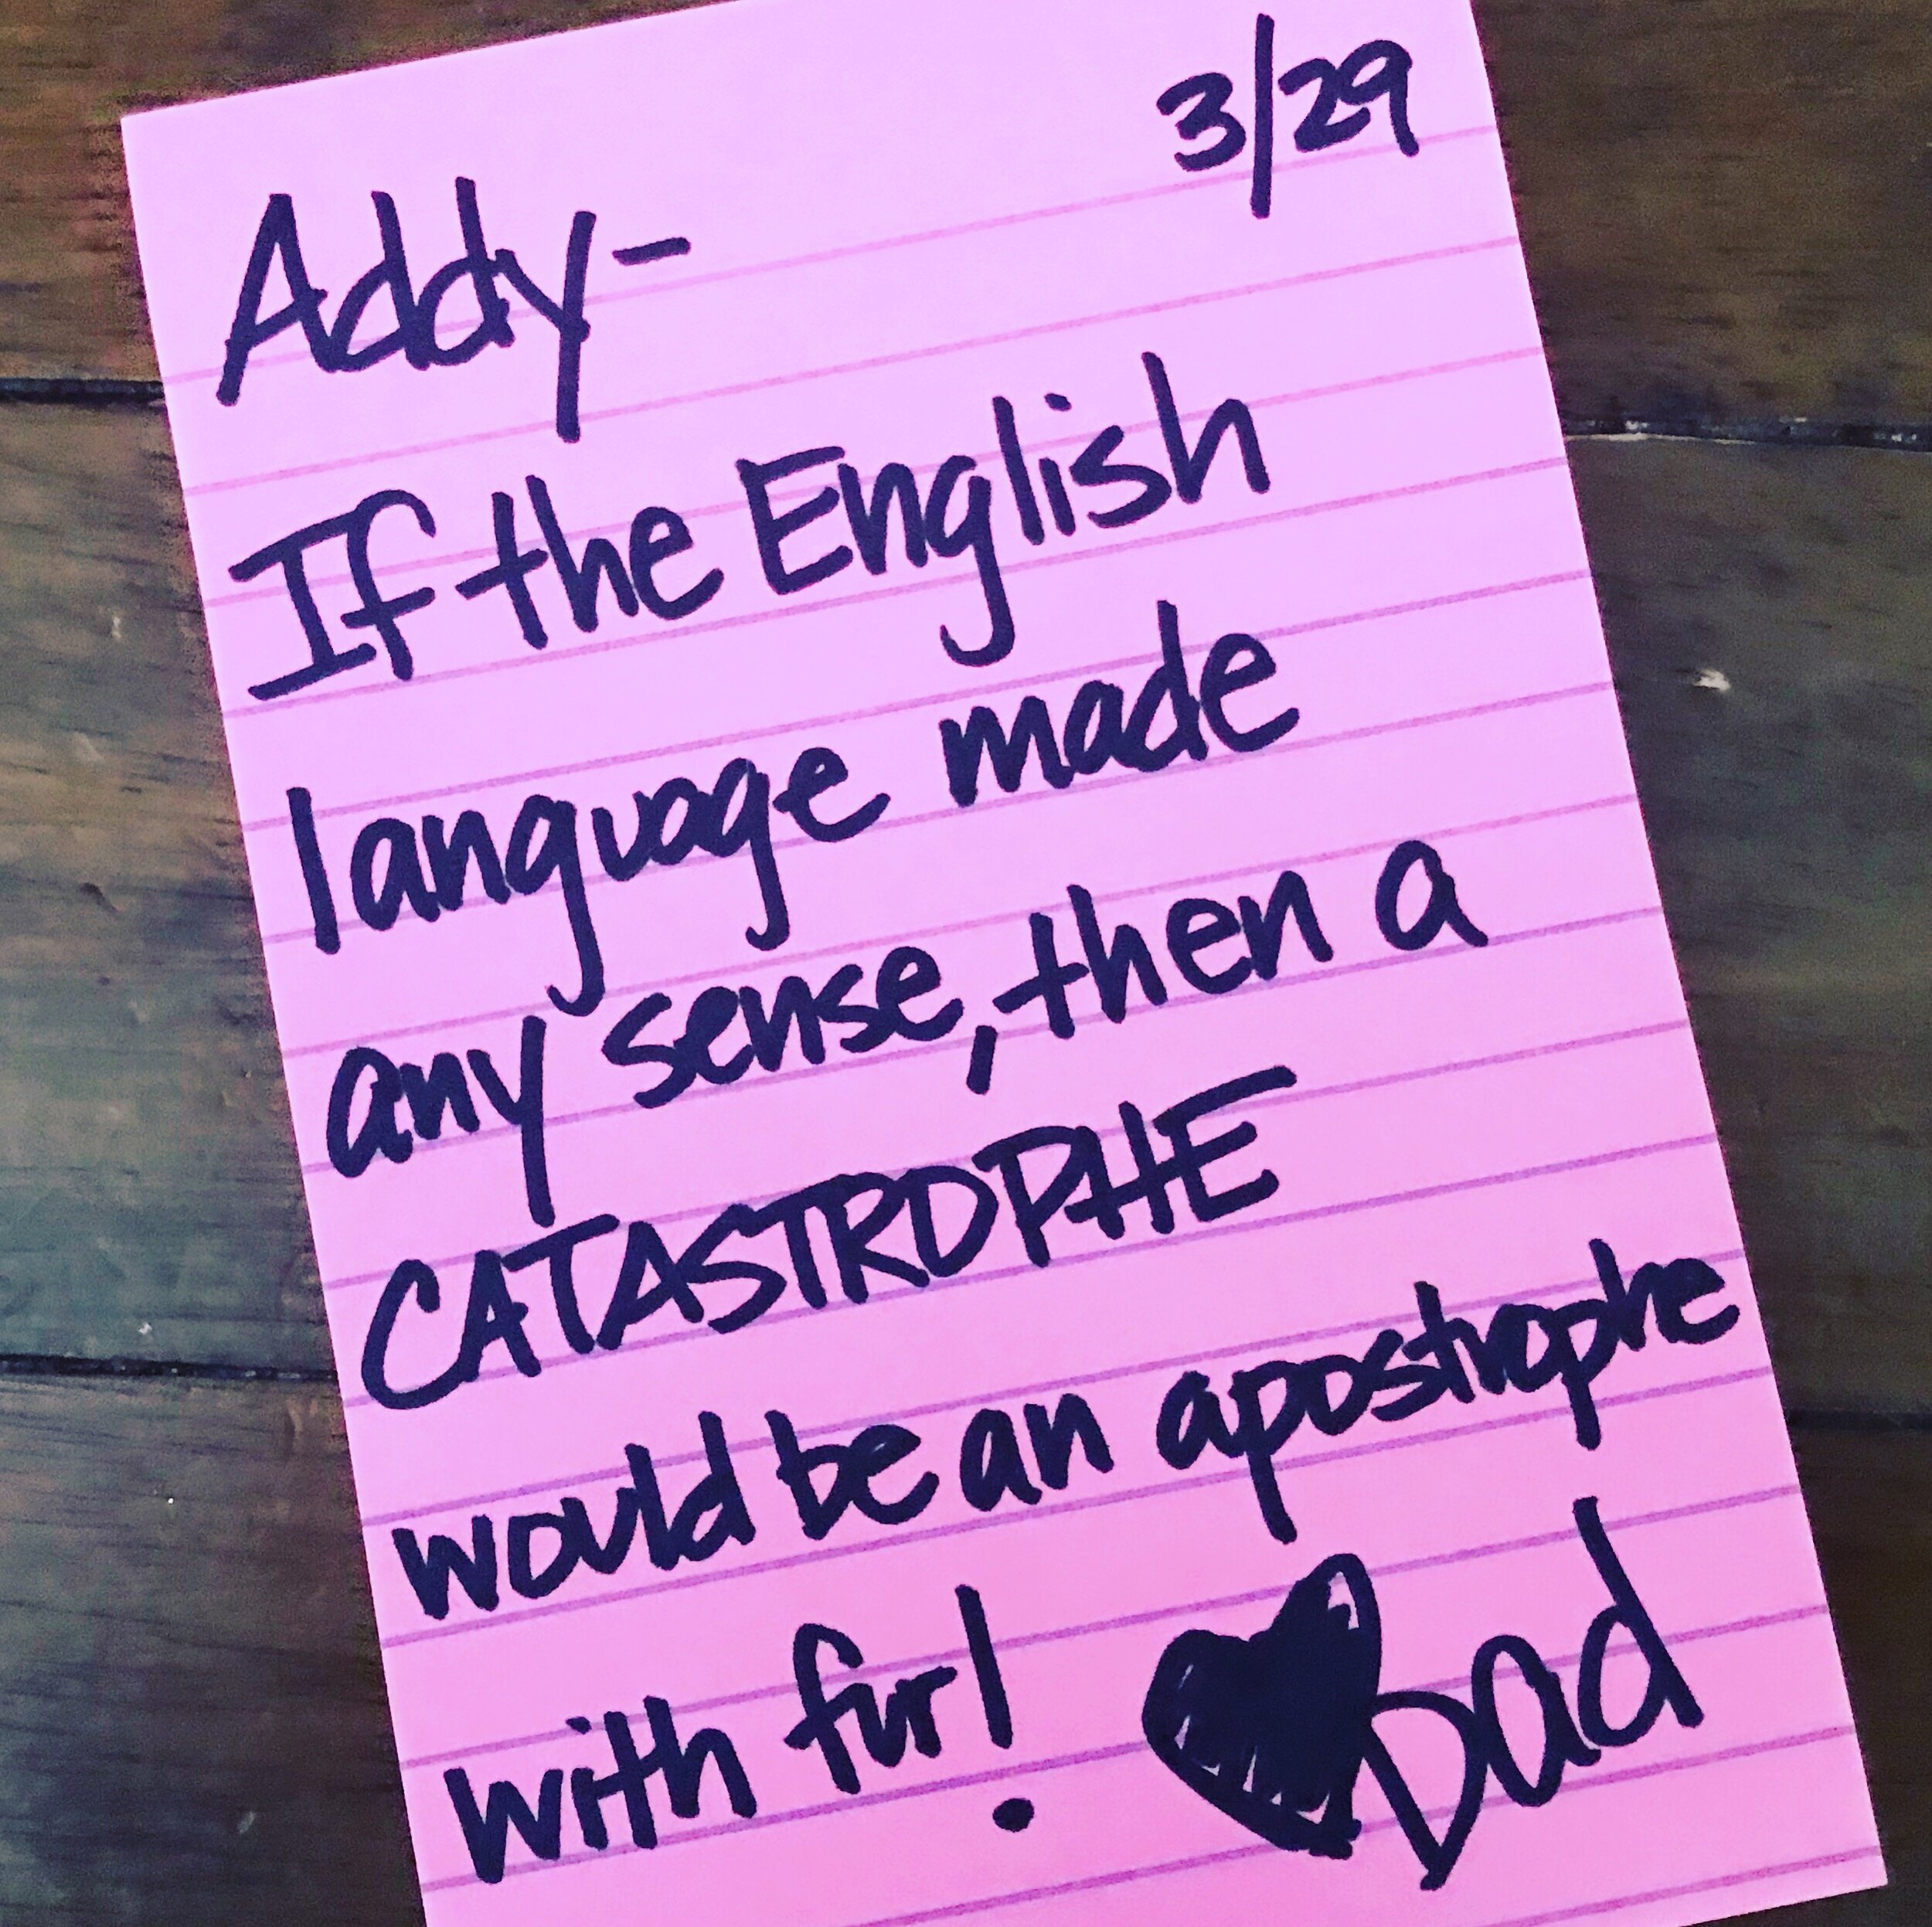 3/29
Addy-
If the English
language made
any sense, then a
CATASTROPHE
would be an apostrophe
with fur! Dad